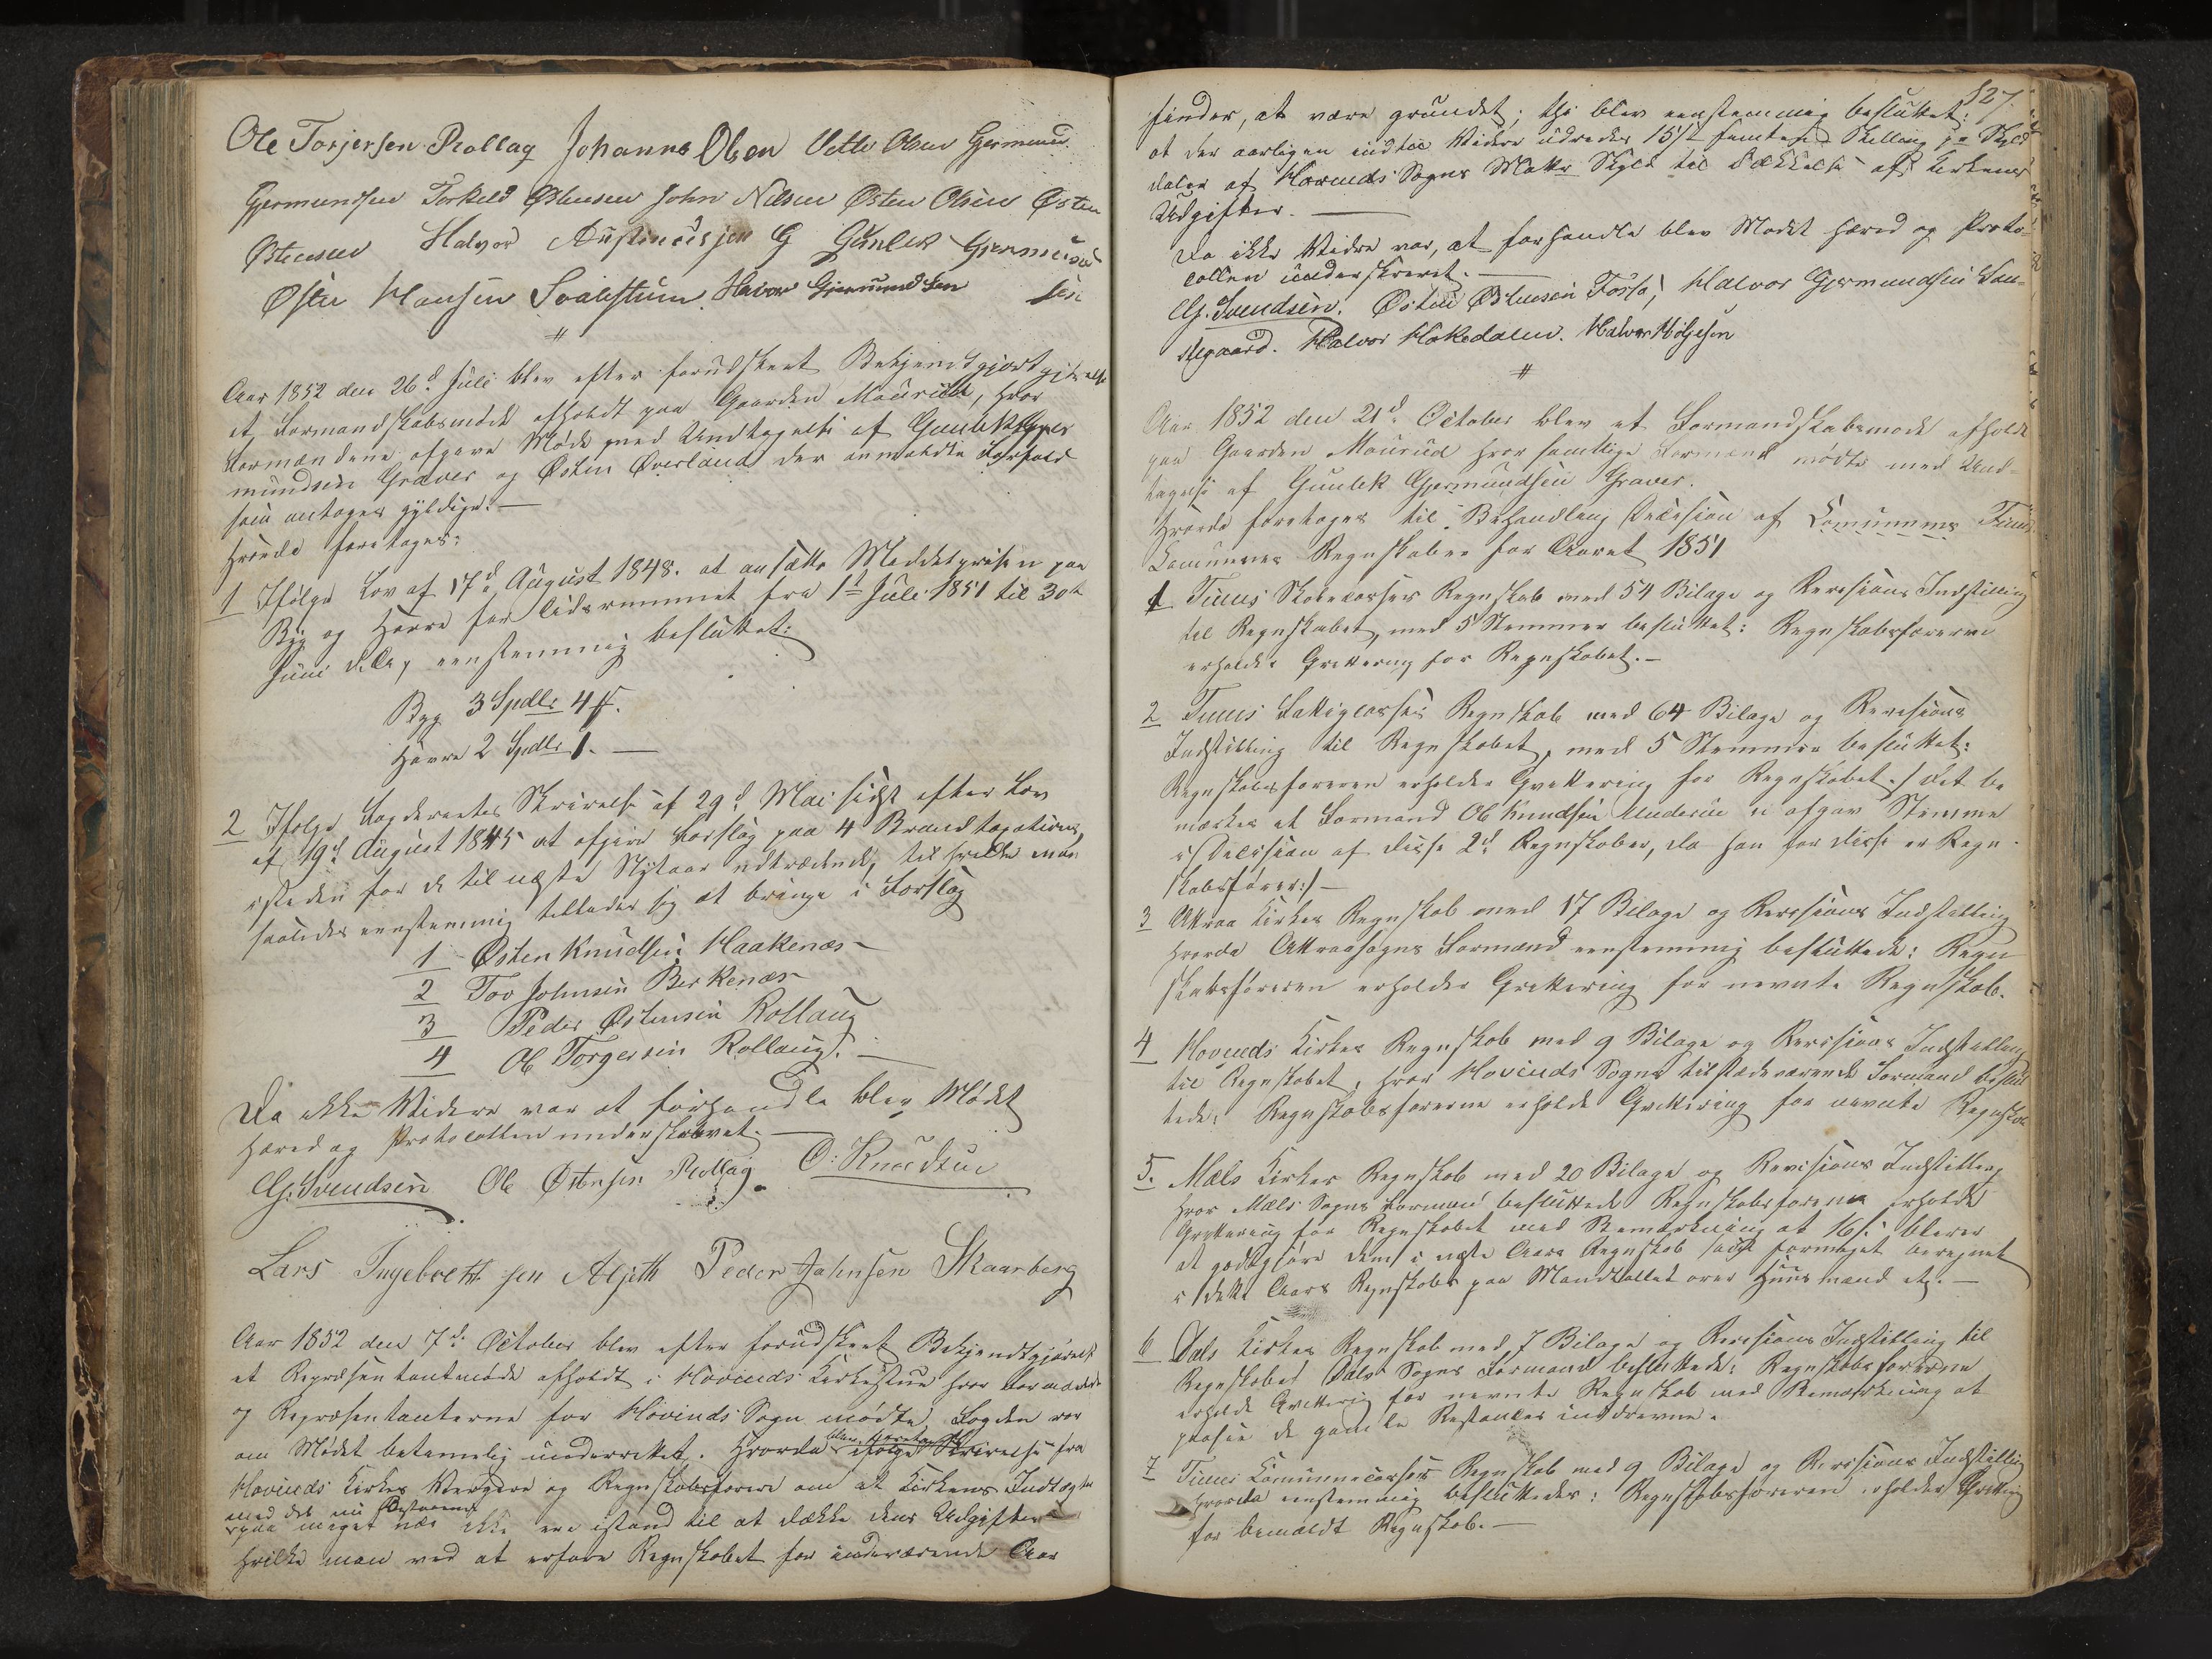 Ole Torjersen Rollag Johannes Olsen Vetle Olsen Germund
Gjermundsen Torkeld Østensen John Nilsen Østen Olsen Østen
Østensen Halvor Austinussen G Gunlek Gjermund
sen
Østen Hansen Svalestuen Halvor Gjermundsen
#
Aar 1852 den 26d Juli blev efter forudskeet Bekjendtgjørelse
et Formandskabsmøde afholdt paa Gaarden Maurud, hvor
Formændene afgave Møde med Undtagelse af Gunlek Gjer
mundsen Graver og Østen Øverland der anmeldte Forfald
som antages gyldige.—
Hvorda foretoges:
1 Ifølge Lov af 17d August 1848. at ansætte Middelprisen paa
Byg og Havre for Tidsrummet fra 1ste Juli 1851 til 30te
Juni d.A., eenstemmig besluttet:
Byg 3 Spdlr 4 ₰.
Havre 2 Spdlr 1.—
2 Ifølge Fogderiets Skrivelse af 29d Mai sidst efter Lov
af 19d August 1845 at afgive Forslag paa 4 Brandtaxationsmænd
isteden for de til næste Nytaar udtrædende, til hvilke man
saaledes eenstemmig tillader sig at bringe i Forslag
1 Østen Knudsen Haakenæs
2 Tov Johnsen Berkenæs
3 Peder Østensen Rollaug
4 Ole Torgersen Rollaug.—
Da ikke Videre var at forhandle blev Mødet
hævet og Protocollen underskrevet.—
G. Svendsen Ole Østensen Rollag. O. Knudsen
Lars Ingebretsen Peder Johnsen Skaarberg
Aar 1852 den 7d October blev efter forudskeet Bekjendtgjørelse
et Repræsentantmøde afholdt i Hovinds Kirkestue hvor Formænd
og Repræsentanterne for Hovinds Sogn mødte, Fogden var
om Mødet betimelig underrettet. Hvorda blev foretaget ifølge Skrivelse fra
Hovinds Kirkes Værgere og Regnskabsførere om at Kirkens Indtægter
med det nu Bestaaende
paa meget nær ikke ere istand til at dække dens Udgifter
hvilke man ved at erfare Regnskabet for indeværende Aar
127.
finder, at være grundet; thi blev eenstemmig besluttet:
at der aarligen indtil Videre udredes 15 femten Skilling pr Skyld
daler af Hovinds Sogns Matr Skyld til Dækkelse af Kirkens
Udgifter.—
Da ikke Videre var, at forhandle blev Mødet hævet og Proto-
collen underskrevet.—
G. Svendsen. Østen Østensen Fosso, Halvor Gjermundsen Sau-
degaard. Halvor Hokedalen. Halvor Helgesen
#
Aar 1852 den 21d October blev et Formandskabsmøde afholdt
paa Gaarden Maurud hvor samtlige Formænd mødte med Und-
tagelse af Gunlek Gjermundsen Graver.
Hvorda foretoges til Behandling Decision af Communens Tinns
Communes Regnskaber for Aaret 1851
1 Tinns Skolecasses Regnskab med 54 Bilage og Revisions Indstilling
til Regnskabet, med 5 Stemmer besluttet: Regnskabsføreren
erholder Qvittering for Regnskabet.—
2 Tinns Fattigcasses Regnskab med 64 Bilage og Revisions
Indstilling til Regnskabet, med 5 Stemmer besluttet:
Regnskabsføreren erholder Qvittering for Regnskabet./ det be
mærkes at Formand Ole Knudsen ei afgav Stemme
i Decision af disse 2de Regnskaber, da han for disse er Regn-
skabsfører:/—
3 Attraa Kirkes Regnskab med 17 Bilage og Revisions Indstilling
hvorda Attraasogns Formænd eenstemmig besluttede: Regn
skabsføreren erholder Qvittering for nevnte Regnskab.
4 Hovinds Kirkes Regnskab med 9 Bilage og Revisions Indstilling
til Regnskabet, hvor Hovinds Sogns tilstedeværende Formænd beslut
tede: Regnskabsførerne erholde Qvittering for nevnte Regnskab
5. Mæls Kirkes Regnskab med 20 Bilage og Revisions Indstilling
hvor Mæls Sogns Formænd besluttede Regnskabsførerne erholde
Qvittering for Regnskabet med Bemærkning at 16 s. bliver
at godtgjøre dem i næste Aars Regnskab som formeget beregnet
i dette Aars Regnskab paa Mandtallet over Huusmænd etc.—
6 Dals Kirkes Regnskab med 7 Bilage og Revisions Indstilling til
Regnskabet Dals Sogns Formænd besluttede: Regnskabsførerne
erholde Qvittering for nevnte Regnskab med Bemærkning at
de gamle Restancer inddrevne.
7 Tinns Communecasses Regnskab med 9 Bilage og Revisions Indstilling
hvorda eenstemmig besluttedes: Regnskabsføreren erholder Qvittering
for bemældt Regnskab.—